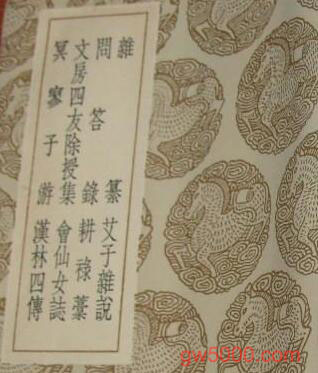 雜纂 艾子雜說
問答錄 耕祿藁
文房四友除授集 會仙女誌
冥寥子游 漢林四傳
gw5000.com